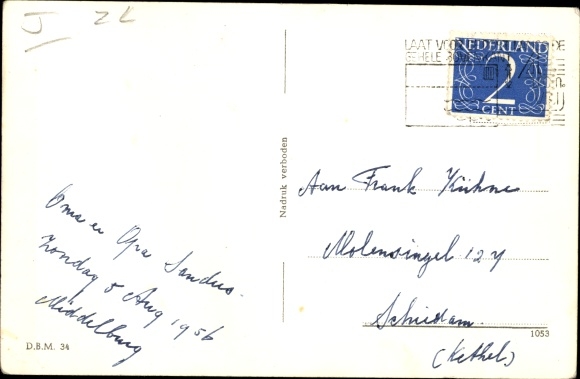 J 2L
LAAT VOOR
DE
GEHELE
NEDERLAND
2
CENT
Nadruk verboden
Aan Frank Kühne
Molensingel 127
Schiedam.
(Kethel)
1053
Oma en Opa Sanders.
Zondag 5 Aug 1956
Middelburg
D.B.M. 34